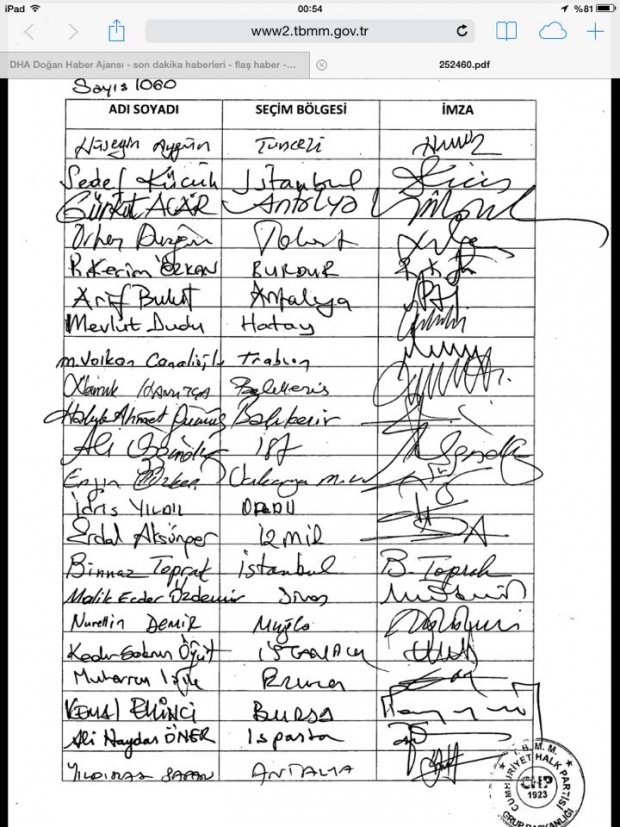 iPad 00:54 %81
www2.tbmm.gov.tr
DHA Doğan Haber Ajansı - son dakika haberleri - flaş haber -... 252460.pdf
Sayıs 1060
ADI SOYADI SEÇİM BÖLGESİ İMZA
Hüseyin Aygün Tunceli
Sedef Küçük İstanbul
Gürkut ACAR Antalya
Orhan Düzgün Tokat
R. Kerim ÖZKAN BURDUR
Arif Bulut Antalya
Mevlut Dudu Hatay
M. Volkan Canalioğlu Trabzon
Namık
Haluk Ahmet Gümüş Balıkesir
Ali İst
Engin Özkoç Sakarya
İdris YILDIZ ORDU
Erdal Aksünger İzmir
Binnaz Toprak İstanbul B. Toprak
Malik Ecder Özdemir Sivas
Nurettin Demir Muğla
Kadir Gökmen Öğüt İSTANBUL
Muharrem
KEMAL EKİNCİ BURSA
Ali Haydar ÖNER Isparta
YILDIRAY SAPAN ANTALYA
T.B.M.M.
CUMHURİYET HALK PARTİSİ
CHP
1923
GRUP BAŞKANLIĞI